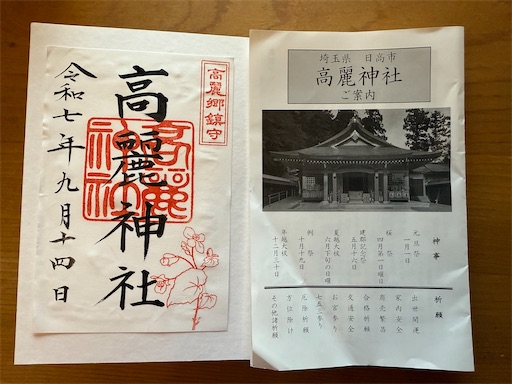 高麗郷鎮守
高麗神社
令和七年九月十四日
高麗神社
埼玉県 日高市
高麗神社
ご案内
神事
元旦祭
一月一日
桜祭
四月第一日曜日
建郡記念祭
五月十六日
夏越大祓
六月下旬の日曜
例祭
十月十九日
年越大祓
十二月三十日
祈願
出世開運
家内安全
商売繁昌
合格祈願
交通安全
お宮参り
七五三参り
厄除祈願
方位除け
その他諸祈願